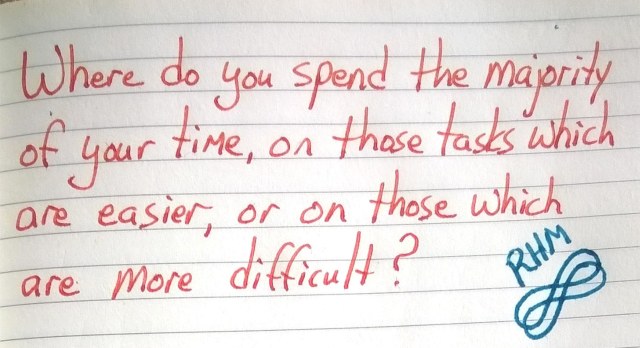 Where do you spend the majority
of your time, on those tasks which
are easier, or on those which
are more difficult?
RHM